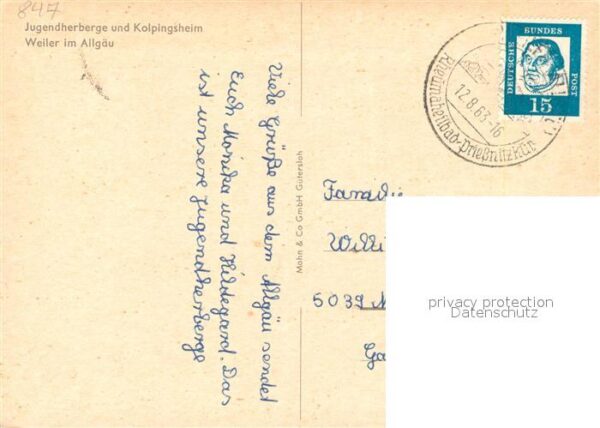 847
Jugendherberge und Kolpingsheim
Weiler im Allgäu
Viele Grüße aus dem Allgäu sendet
Euch Monika und Hildegard. Das
ist unsere Jugendherberge
Mohn & Co GmbH Gütersloh
DEUTSCHE
BUNDES
POST
15
12.8.63-16
Rheumaheilbad-Prießnitzkur
Familie
Willi
5039
Ga
privacy protection
Datenschutz